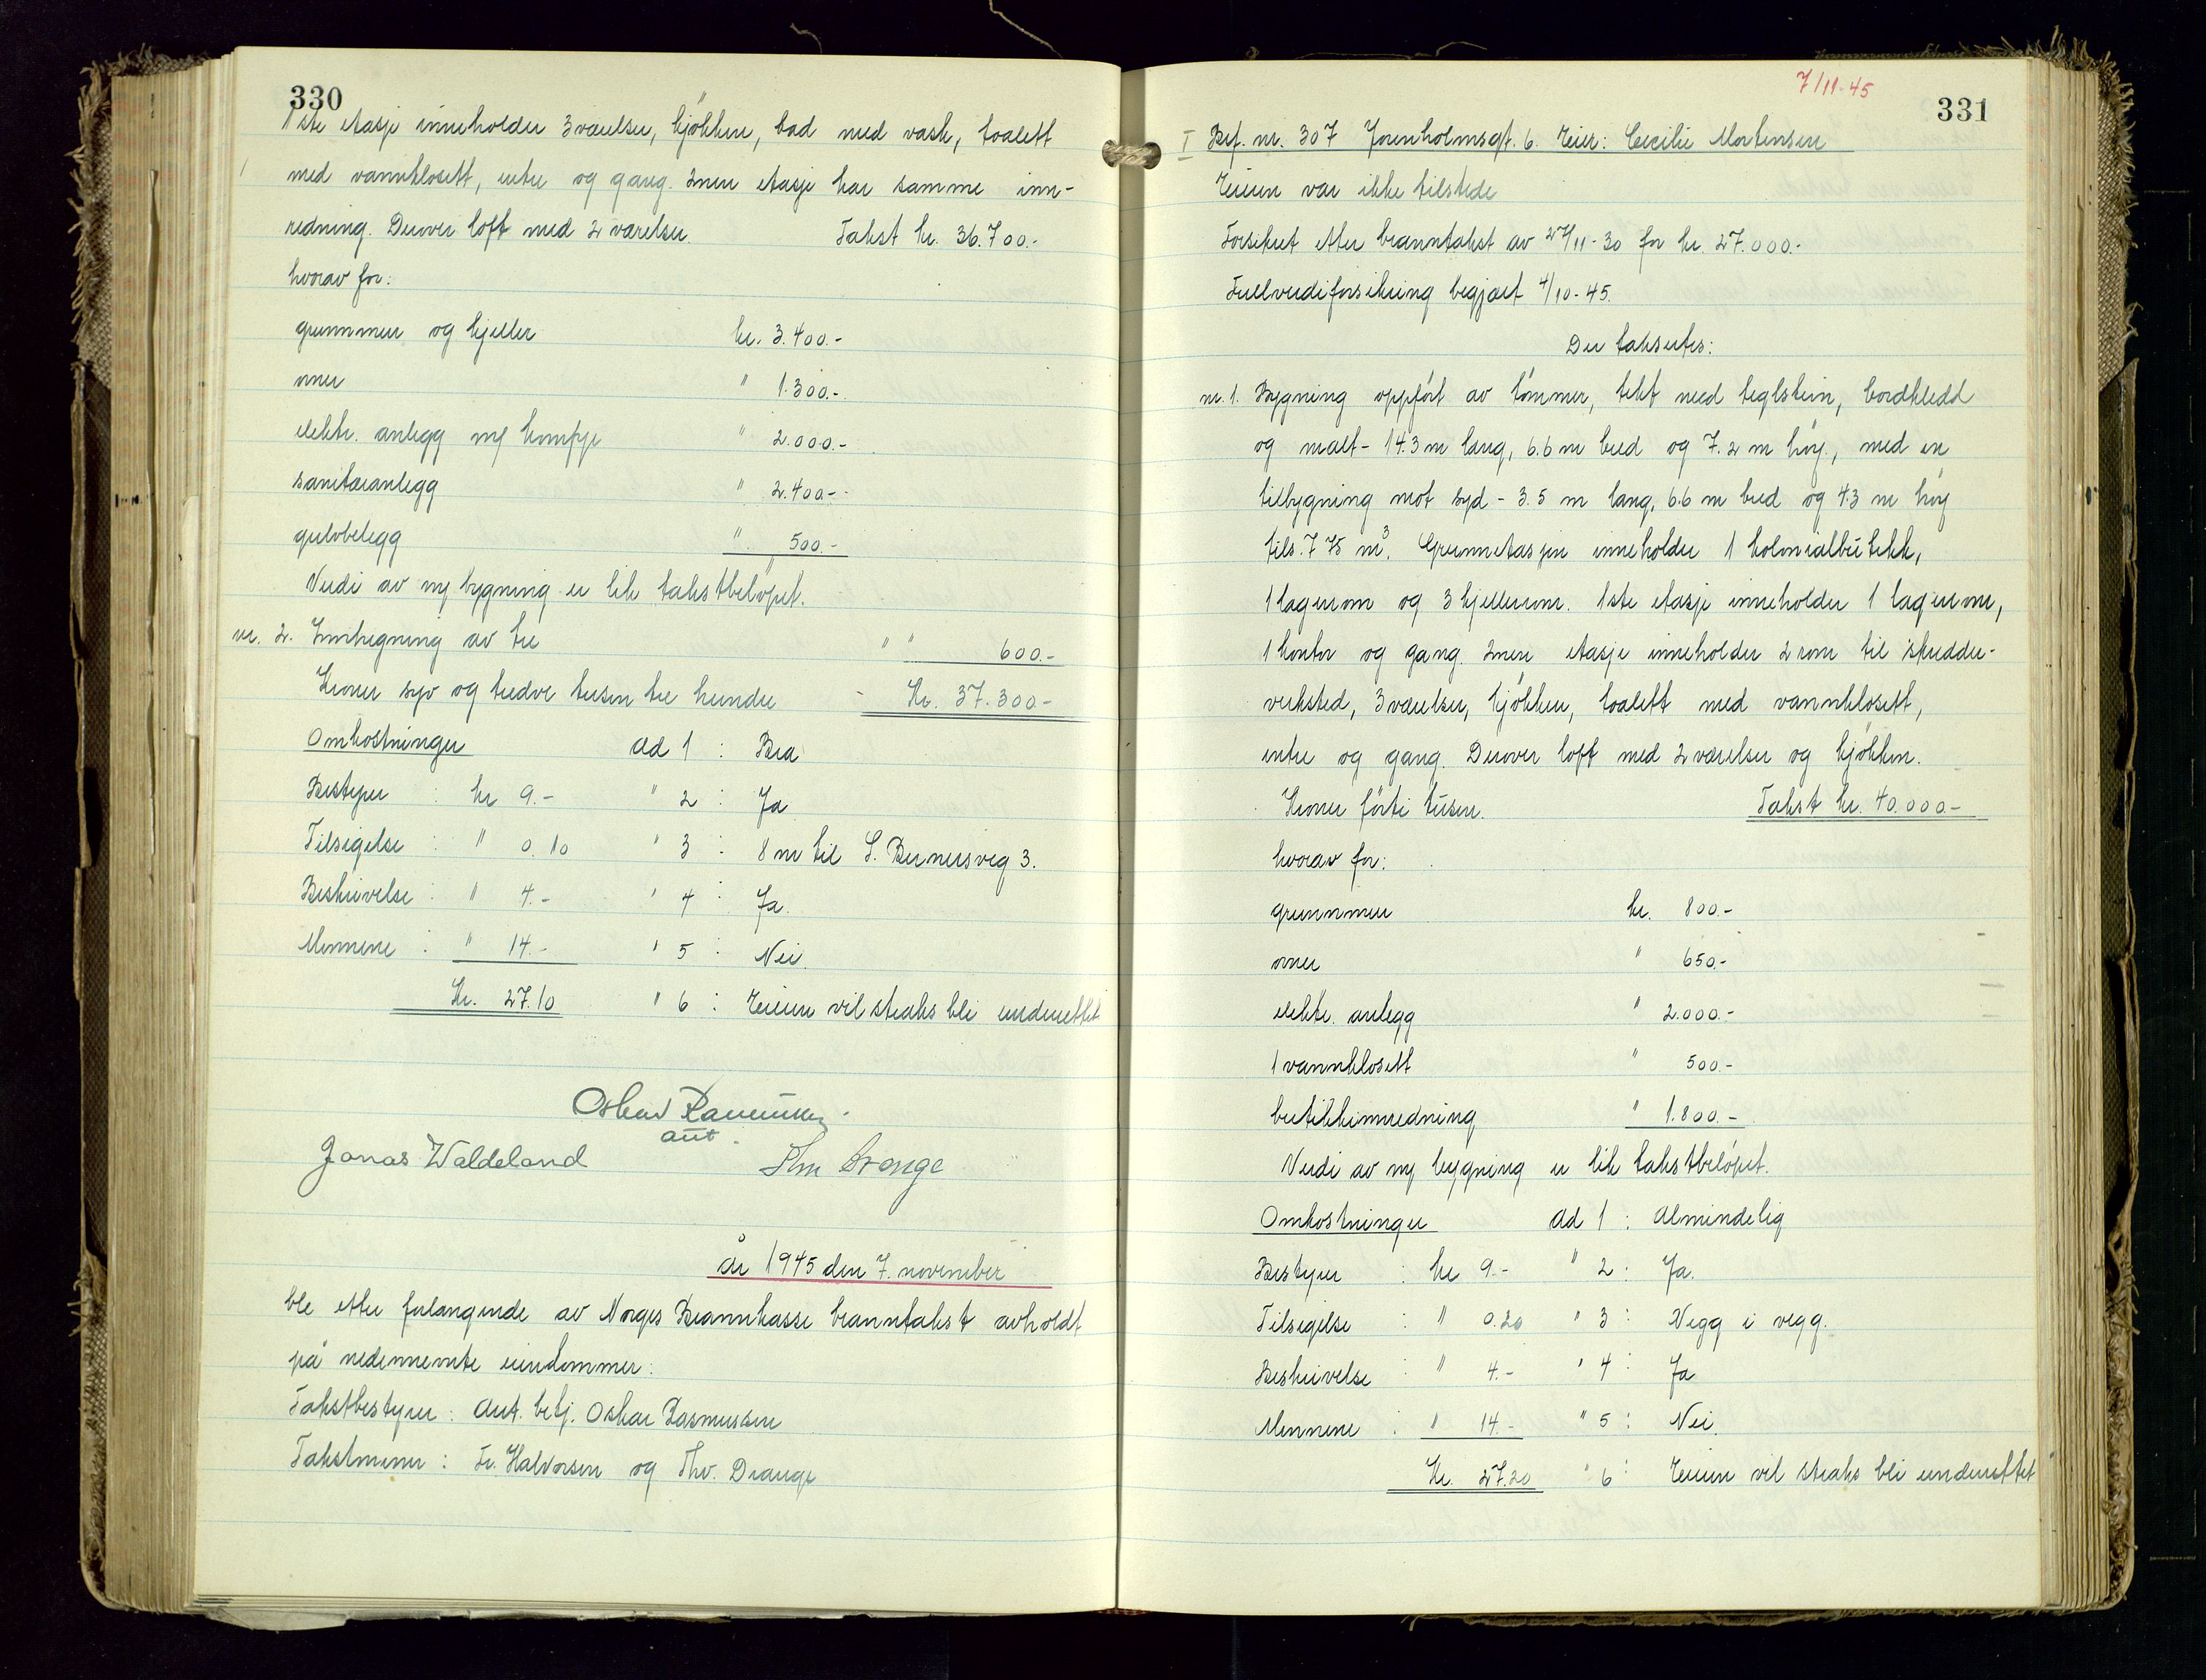 330
1ste etasje inneholder 3 værelser, kjøkken, bad med vask, toalett
med vannklosett, entre og gang. 2nen etasje har samme inn-
redning. Derover loft med 2 værelser. Takst kr. 36.700.-
hvorav for:
grunnmur og kjeller kr. 3.400.-
ovner " 1.300.-
elektr. anlegg m/ komfyr " 2.000.-
sanitæranlegg " 2.400.-
gulvbelegg " 500.-
Verdi av ny bygning er lik takstbeløpet.
nr. 2. Innhegning av tre " " 600.-
Kroner syv og tredve tusen tre hundre - Kr. 37.300.-
Omkostninger ad 1 : Bra
Bestyrer : kr 9.- " 2 : Ja
Tilsigelse : " 0.10 " 3 : 8 m til S. Bernersveg 3.
Beskrivelse : " 4.- " 4 : Ja.
Mennene : " 14.- " 5 : Nei.
Kr. 27.10 " 6 : Eieren vil straks bli underrettet
Oskar Rasmussen.
aut.
Jonas Waldeland Thv Drange
År 1945 den 7. november
ble etter forlangende av Norges Brannkasse branntakst avholdt
på nedennevnte eiendommer:
Takstbestyrer: Aut. betj. Oskar Rasmussen
Takstmenn: Fr. Halvorsen og Thv. Drange
7/11-45
331
I Brf. nr. 307 Jorenholmsgt. 6. Eier: Cecilie Mortensen
Eieren var ikke tilstede
Forsikret etter branntakst av 27/11-30 for kr. 27.000.-
Fullverdiforsikring begjært 4/10-45.
Der takseres:
nr. 1. Bygning oppført av tømmer, tekt med teglstein, bordkledd
og malt - 14.3 m lang, 6.6 m bred og 7.2 m høy., med en
tilbygning mot syd - 3.5 m lang, 6.6 m bred og 4.3 m høy
tils. 775 m³. Grunnetasjen inneholder 1 kolonialbutikk,
1 lagerrom og 3 kjellerrom. 1ste etasje inneholder 1 lagerrom,
1 kontor og gang. 2nen etasje inneholder 2 rom til skredder-
verksted, 3 værelser, kjøkken, toalett med vannklosett,
entre og gang. Derover loft med 2 værelser og kjøkken.
Kroner førti tusen. Takst kr. 40.000.-
hvorav for:
grunnmur kr. 800.-
ovner " 650.-
elektr. anlegg " 2.000.-
1 vannklosett " 500.-
butikkinnredning " 1.800.-
Verdi av ny bygning er lik takstbeløpet.
Omkostninger Ad 1 : Almindelig
Bestyrer : kr 9.- " 2 : Ja.
Tilsigelse : " 0.20 " 3 : Vegg i vegg.
Beskrivelse : " 4.- " 4 : Ja
Mennene : " 14.- " 5 : Nei.
Kr. 27.20 " 6 : Eieren vil straks bli underrettet